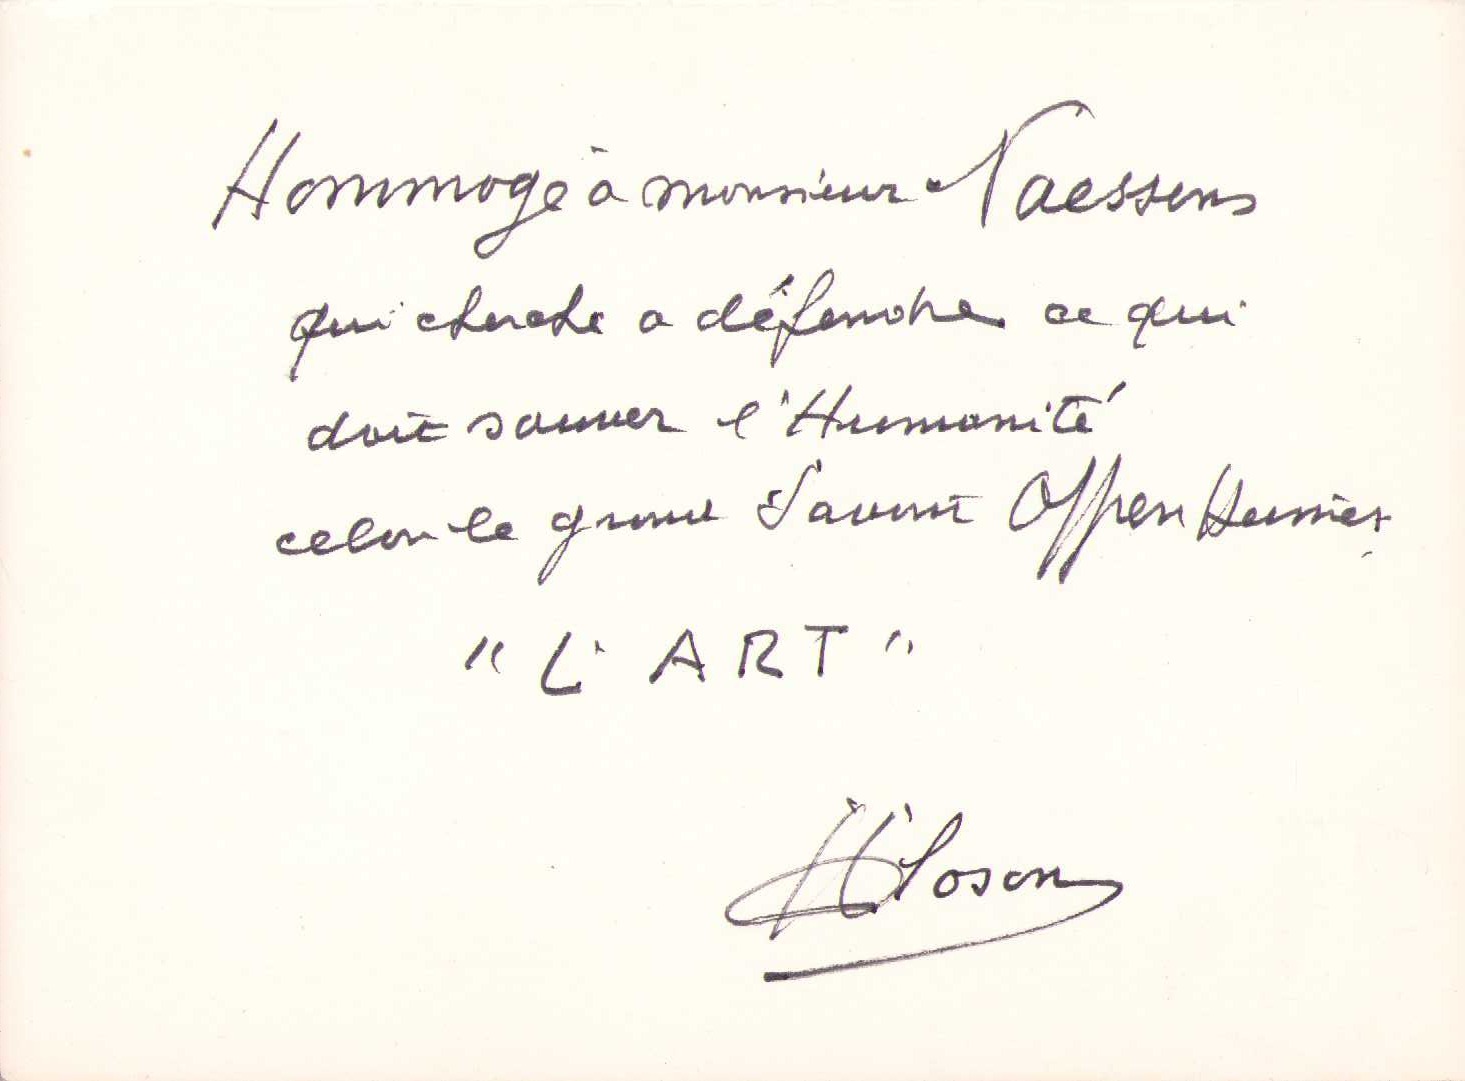 Hommage à monsieur Naessens
qui cherche a défendre ce qui
doit sauver l'Humanité
celon le grand Savant OppenHeimer
"L'ART"
H Closon